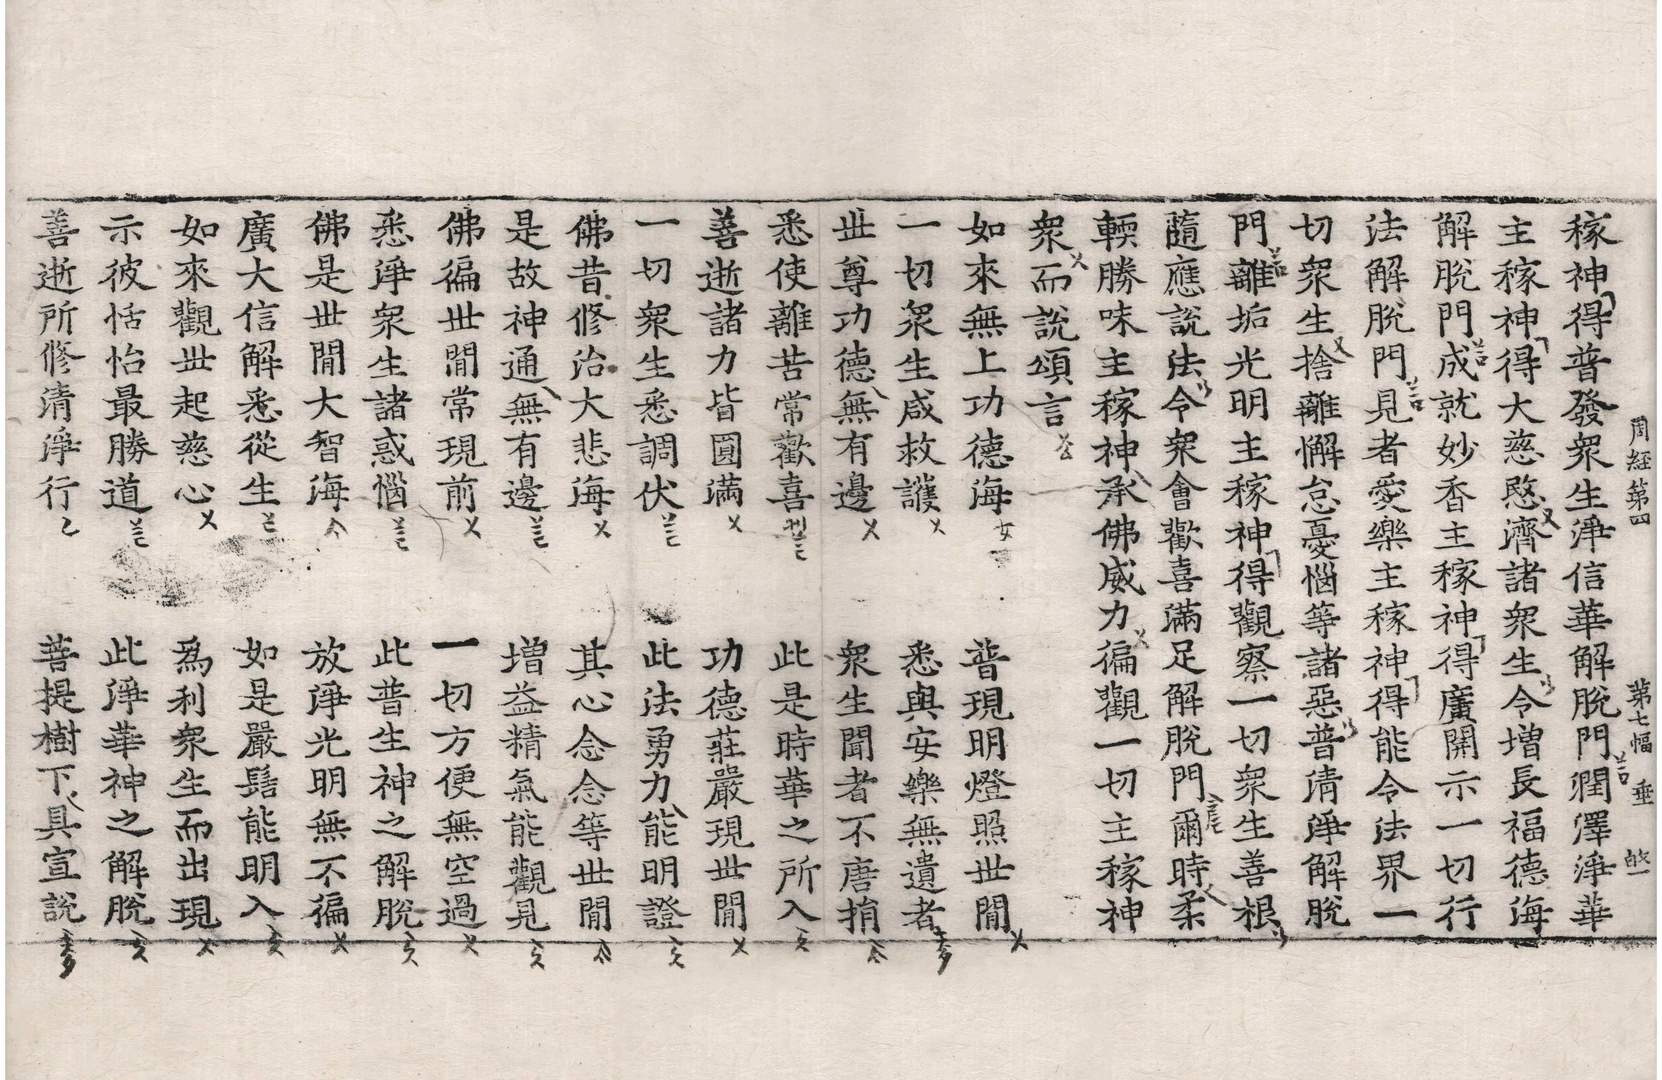 周経第四　第七幅　垂
稼神得普發衆生淨信華解脫門潤澤淨華
主稼神得大慈愍濟諸衆生令增長福德海
解脫門成就妙香主稼神得廣開示一切行
法解脫門見者愛樂主稼神得能令法界一
切衆生捨離懈怠憂惱等諸惡普清淨解脫
門離垢光明主稼神得觀察一切衆生善根
隨應說法令衆會歡喜滿足解脫門爾時柔
輭勝味主稼神承佛威力徧觀一切主稼神
衆而說頌言
如來無上功德海　普現明燈照世間
一切衆生咸救護　悉與安樂無遺者
世尊功德無有邊　衆生聞者不唐捐
悉使離苦常歡喜　此是時華之所入
善逝諸力皆圓滿　功德莊嚴現世間
一切衆生悉調伏　此法勇力能明證
佛昔修治大悲海　其心念念等世間
是故神通無有邊　增益精氣能觀見
佛徧世間常現前　一切方便無空過
悉淨衆生諸惑惱　此普生神之解脫
佛是世間大智海　放淨光明無不徧
廣大信解悉從生　如是嚴髻能明入
如來觀世起慈心　爲利衆生而出現
示彼恬怡最勝道　此淨華神之解脫
善逝所修清淨行　菩提樹下具宣說